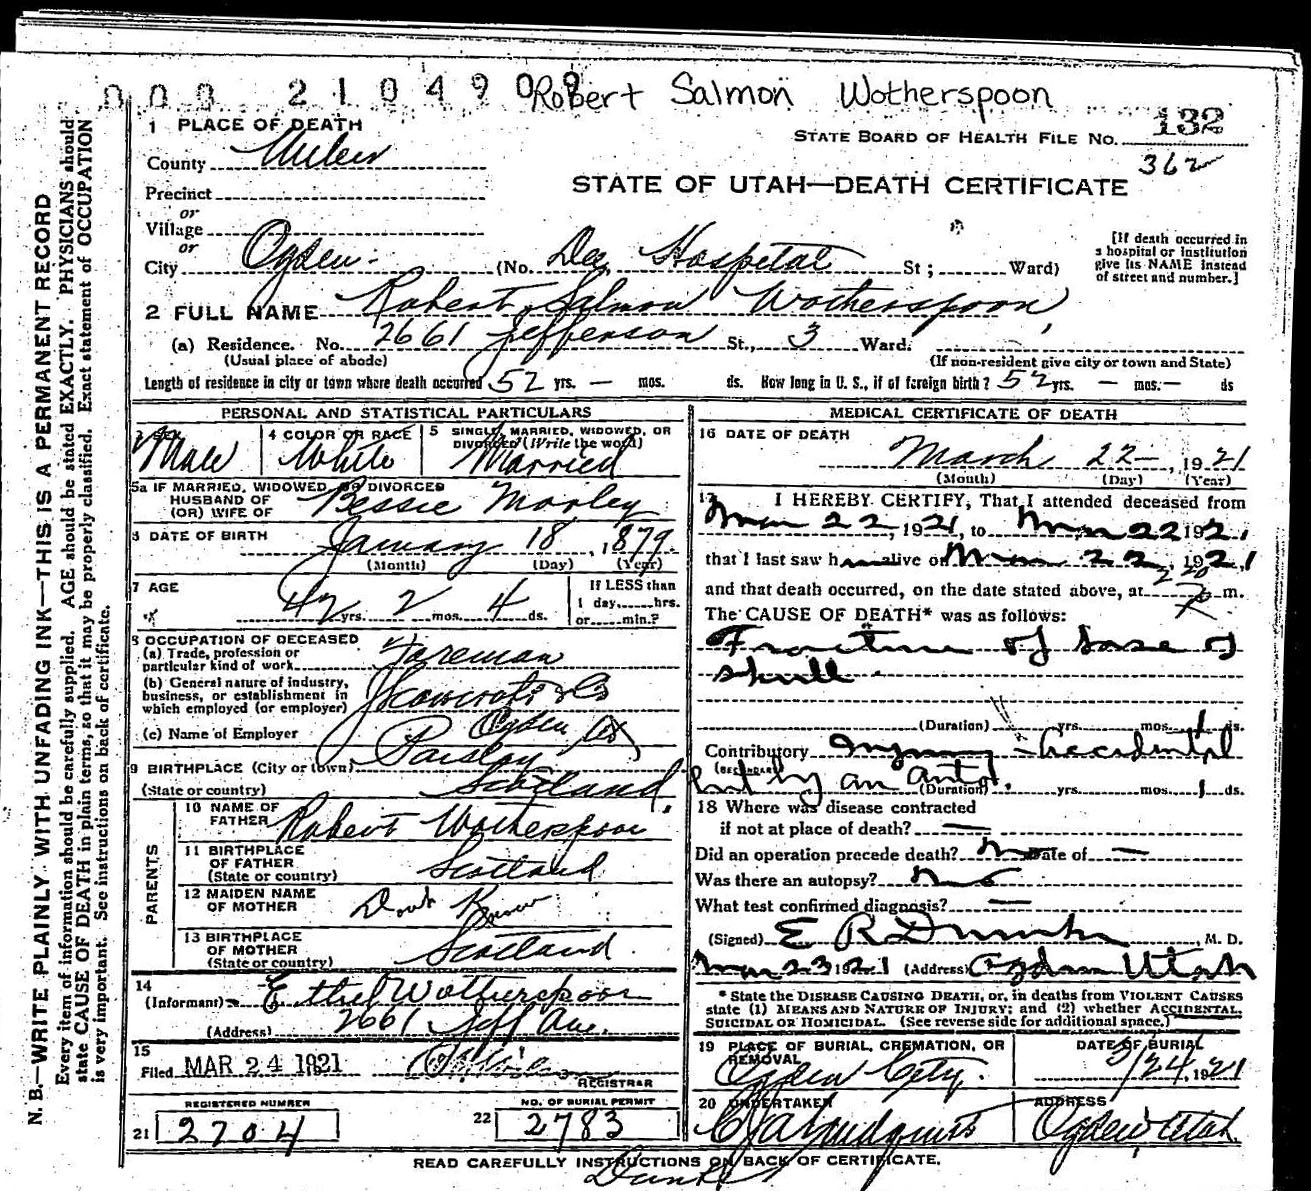 000 2104909 Robert Salmon Wotherspoon
1 PLACE OF DEATH
STATE BOARD OF HEALTH FILE NO. 132
County
362
Precinct
STATE OF UTAH—DEATH CERTIFICATE
or
Village
or
City Ogden (No. Dee Hospital St; Ward)
[If death occurred in
a hospital or institution
give its NAME instead
of street and number.]
2 FULL NAME Robert Salmon Wotherspoon
(a) Residence. No. 2661 Jefferson St., 3 Ward.
(Usual place of abode) (If non-resident give city or town and State)
Length of residence in city or town where death occurred 52 yrs. — mos. ds. How long in U. S., if of foreign birth? 52 yrs. — mos. — ds
PERSONAL AND STATISTICAL PARTICULARS
3 SEX Male
4 COLOR OR RACE White
5 SINGLE, MARRIED, WIDOWED, OR
DIVORCED (Write the word)
Married
5a IF MARRIED, WIDOWED, OR DIVORCED
HUSBAND OF
(OR) WIFE OF Bessie Morley
6 DATE OF BIRTH January 18, 1879
(Month) (Day) (Year)
7 AGE 42 yrs. 2 mos. 4 ds.
If LESS than
1 day, hrs.
or min.?
8 OCCUPATION OF DECEASED
(a) Trade, profession or
particular kind of work Foreman
(b) General nature of industry,
business, or establishment in
which employed (or employer)
(c) Name of Employer Ogden
9 BIRTHPLACE (City or town) Paisley
(State or country) Scotland.
PARENTS
10 NAME OF
FATHER Robert Wotherspoon
11 BIRTHPLACE
OF FATHER
(State or country) Scotland
12 MAIDEN NAME
OF MOTHER Dont Know
13 BIRTHPLACE
OF MOTHER
(State or country) Scotland.
14
(Informant) Ethel Wotherspoon
(Address) 2661 Jeff Ave.
15
Filed MAR 24 1921
REGISTRAR
REGISTERED NUMBER
21 2704
NO. OF BURIAL PERMIT
22 2783
MEDICAL CERTIFICATE OF DEATH
16 DATE OF DEATH
March 22 — 1921
(Month) (Day) (Year)
17 I HEREBY CERTIFY, That I attended deceased from
Mar 22, 1921, to Mar 22 1921
that I last saw him alive on Mar 22, 1921
and that death occurred, on the date stated above, at m.
The CAUSE OF DEATH* was as follows:
Fracture of base of
skull
(Duration) yrs. mos. 1 ds.
Contributory Injury — Accidental
(SECONDARY)
hit by an auto. (Duration) yrs. mos. 1 ds.
18 Where was disease contracted
if not at place of death? —
Did an operation precede death? no Date of —
Was there an autopsy? no
What test confirmed diagnosis? —
(Signed) E R Dumke, M. D.
Mar 23 1921 (Address) Ogden Utah
* State the DISEASE CAUSING DEATH, or, in deaths from VIOLENT CAUSES
state (1) MEANS AND NATURE OF INJURY; and (2) whether ACCIDENTAL,
SUICIDAL OR HOMICIDAL. (See reverse side for additional space.)
19 PLACE OF BURIAL, CREMATION, OR
REMOVAL
Ogden City.
DATE OF BURIAL
3/24, 1921
20 UNDERTAKER
ADDRESS
Ogden Utah.
READ CAREFULLY INSTRUCTIONS ON BACK OF CERTIFICATE.
Dumke
N. B.—WRITE PLAINLY, WITH UNFADING INK—THIS IS A PERMANENT RECORD
Every item of information should be carefully supplied. AGE should be stated EXACTLY. PHYSICIANS should
state CAUSE OF DEATH in plain terms, so that it may be properly classified. Exact statement of OCCUPATION
is very important. See instructions on back of certificate.